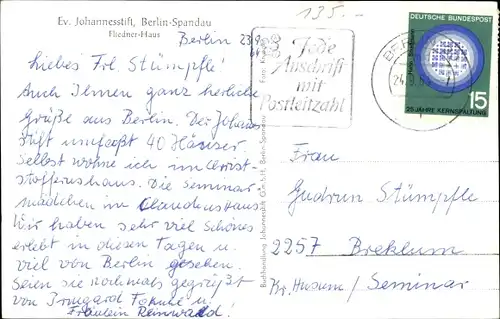 135.-
Ev. Johannesstift, Berlin-Spandau
Fliedner-Haus
Berlin 23.9.
Liebes Frl. Stümpfle!
Auch Ihnen ganz herzliche
Grüße aus Berlin. Der Johannes
stift umfaßt 40 Häuser
Selbst wohne ich im Christ
stofferushaus. Die Seminar
mädchen im Claudiushaus
Wir haben sehr viel Schönes
erlebt in diesen Tagen u.
viel von Berlin gesehen.
Seien sie nochmals gegrüßt
von Irmgard u.
Fräulein Reinwald!
Buchhandlung Johannesstift G.m.b.H. Berlin-Spandau
Jede
Anschrift
mit
Postleitzahl
BER
DEUTSCHE BUNDESPOST
15
25 JAHRE KERNSPALTUNG
Frau
Gudrun Stümpfle
2257 Breklum
Kr. Husum / Seminar